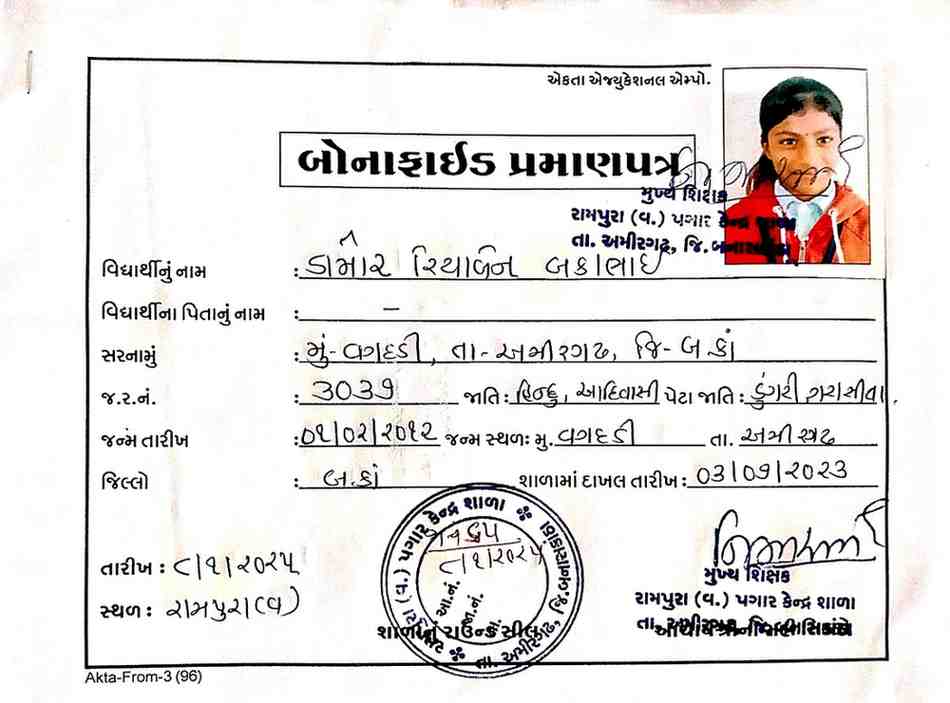 એકતા એજ્યુકેશનલ એમ્પો.
બોનાફાઈડ પ્રમાણપત્ર
મુખ્ય શિક્ષક
રામપુરા (વ.) પગાર કેન્દ્ર શાળા
તા. અમીરગઢ, જિ.બનાસકાંઠા
વિદ્યાર્થીનું નામ : ડામોર રિયાબેન બકાભાઈ
વિદ્યાર્થીના પિતાનું નામ : –
સરનામું : મું-વગદડી, તા-અમીરગઢ, જિ-બ.કાં
જ.ર.નં. : 3039 જાતિ : હિન્દુ, આદિવાસી પેટા જાતિ : ડુંગરી ગરાસીયા.
જન્મ તારીખ : ૦૧/૦૨/૨૦૧૨ જન્મ સ્થળઃ મુ. વગદડી તા. અમીરગઢ
જિલ્લો : બ.કાં શાળામાં દાખલ તારીખ : ૦૩/૦૭/૨૦૨૩
તારીખ : ૮/૧/૨૦૨૫
સ્થળ : રામપુરા(વ)
(વ.) પગાર કેન્દ્ર શાળા
તા. અમીરગઢ, જિ.બનાસકાંઠા
૮/૧/૨૦૨૫
આ.નં.
જા.નં.
શાળાનું રાઉન્ડ સીલ
મુખ્ય શિક્ષક
રામપુરા (વ.) પગાર કેન્દ્ર શાળા
તા. અમીરગઢ,
Akta-From-3 (96)